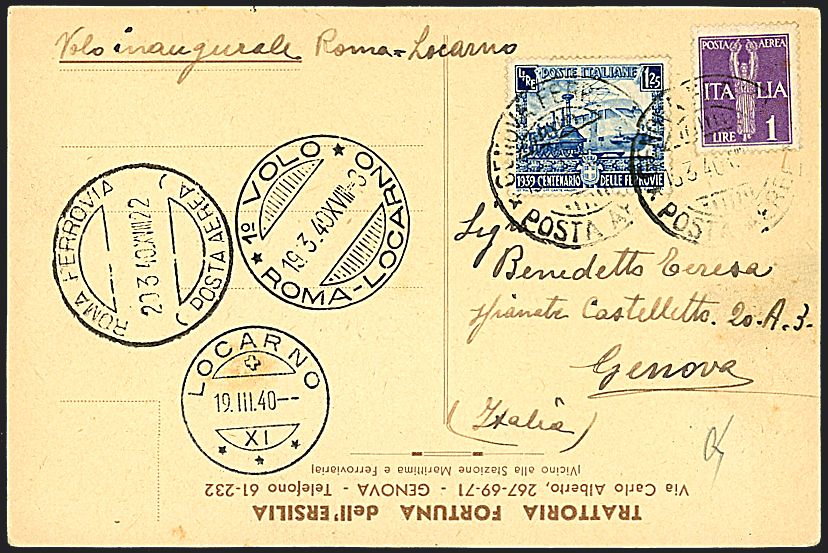 Volo inaugurale Roma=Locarno
LIRE POSTE ITALIANE 1,25
1939 CENTENARIO DELLE FERROVIE
POSTA AEREA
ITALIA
LIRE 1
GENOVA FERR
POSTA
POSTA AEREA
ROMA FERROVIA
20 3 40 XVIII 22
( POSTA AEREA )
★ 1º VOLO ★
19.3.40 XVIII-3
ROMA-LOCARNO
LOCARNO
19.III.40--
XI
Benedetto Teresa
Castelletto. 20.A.3.
Genova
(Italia)
TRATTORIA FORTUNA dell'ERSILIA
Via Carlo Alberto, 267-69-71 - GENOVA - Telefono 61-232
(Vicino alla Stazione Marittima e Ferroviaria)